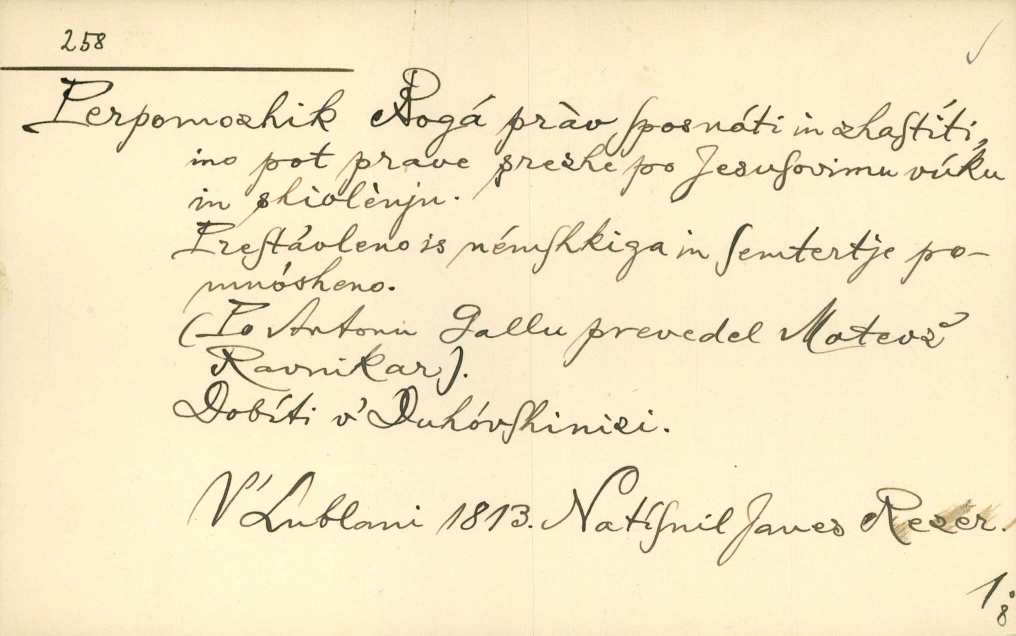 258
Perpomozhik Bogá pràv ſposnáti in zhaſtíti,
ino pot prave srezhe po Jesuſovimu vúku
in shivlènju.
Preſtávleno is némſhkiga in ſemtertje po-
mnósheno.
(Po Antonu Gallu prevedel Matevž
Ravnikar).
Dobíti v' Duhóvſhinizi.
V' Lublani 1813. Natíſnil Janes Rezer.
1.
8°